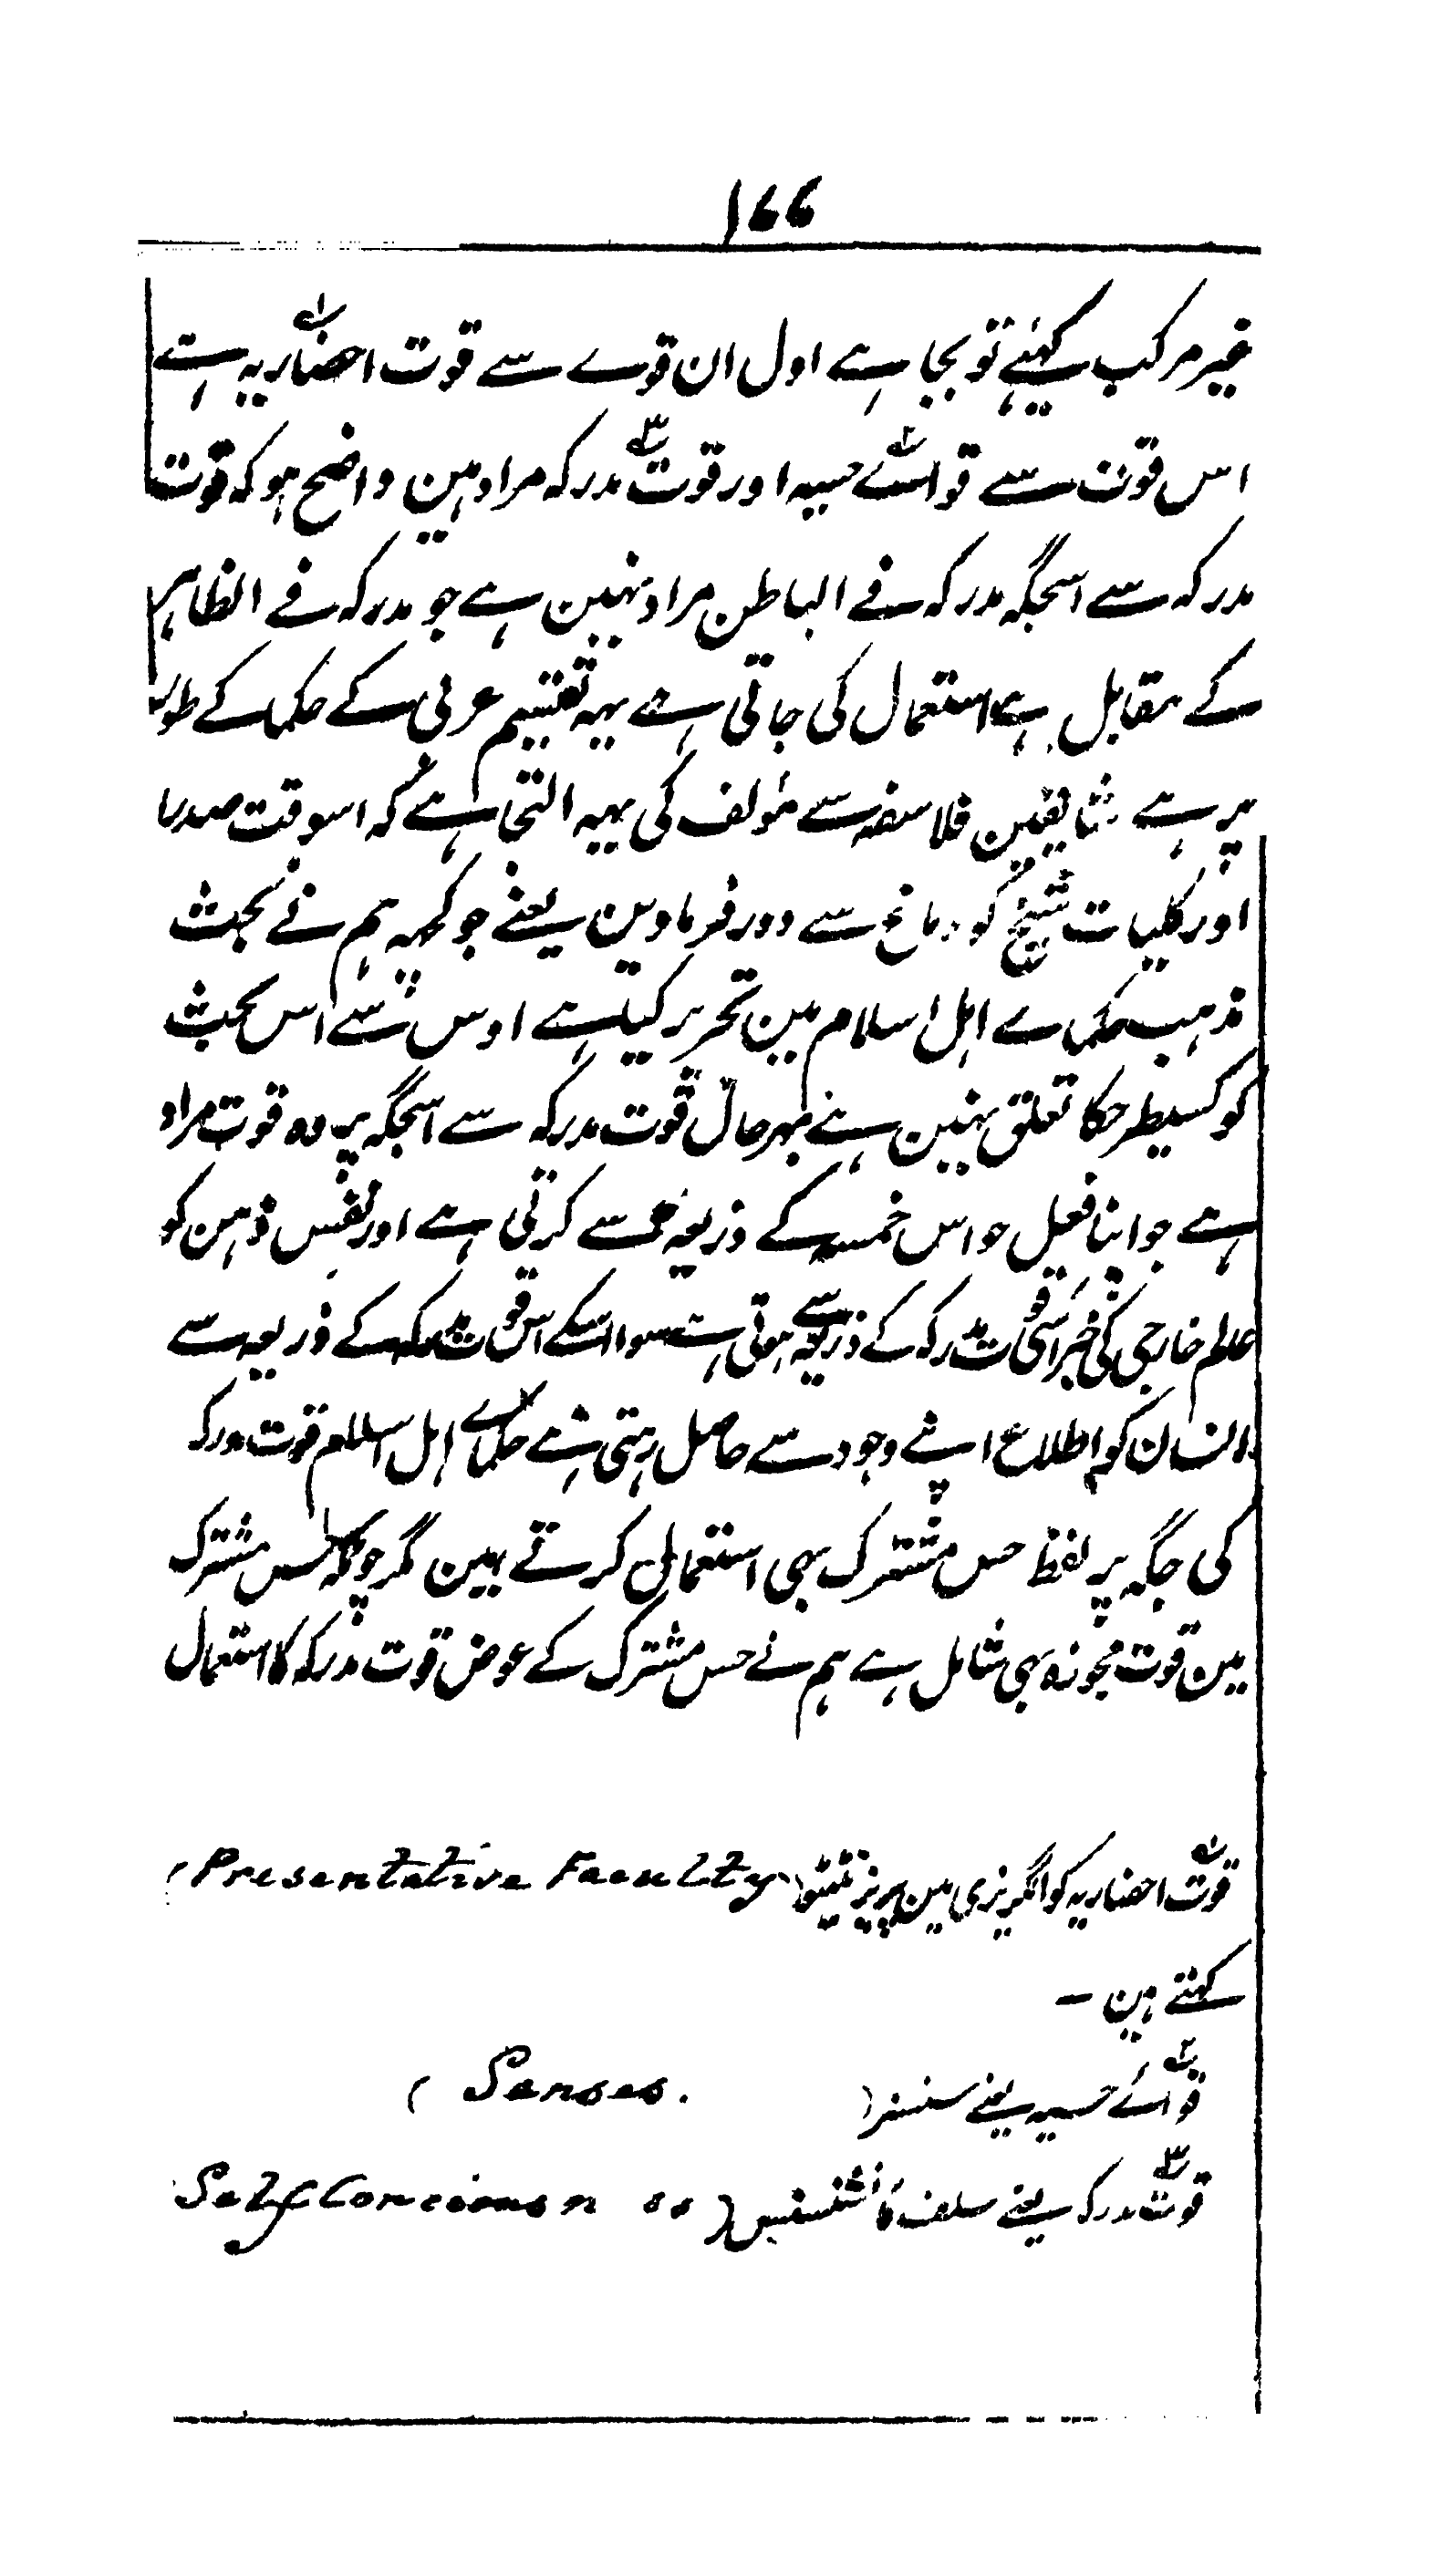 ۱۶۶
غیر مرکب کہئے تو بجا ہے اول ان قوے سے قوت احضاریہ ہے
اس قوت سے قواے حسیہ اور قوت مدرکہ مراد ہین واضح ہو کہ قوت
مدرکہ سے اسجگہ مدرکہ فے الباطن مراد نہین ہے جو مدرکہ فے الظاہر
کے مقابل ہے استعمال کی جاتی ہے یہہ تقسیم عربی کے حکما کے طور
پر ہے شایقین فلاسفہ سے مؤلف کی یہہ التجا ہے کہ اسوقت صدرا
اور کلیات شیخ کو دماغ سے دور فرماوین یعنے جو کچہہ ہم نے بحث
مذہب حکماے اہل اسلام مین تحریر کیا ہے اوس سے اس بحث
کو کسیطرحکا تعلق نہین ہے بہرحال قوت مدرکہ سے اسجگہ پر وہ قوت مراد
ہے جو اپنا فعل حواس خمسہ کے ذریعہ سے کرتی ہے اور نفس ذہن کو
عالم خارجی کی خبر اسی قوت مدرکہ کے ذریعہ سے ہوتی ہے سوا اسکے اس قوت مدرکہ کے ذریعہ سے
انسان کو اطلاع اپنے وجود سے حاصل رہتی ہے حکماے اہل اسلام قوت مدرکہ
کی جگہ پر لفظ حس مشترک بہی استعمال کرتے ہین مگر چونکہ حس مشترک
مین قوت مجوزہ بہی شامل ہے ہم نے حس مشترک کے عوض قوت مدرکہ کا استعمال
۱ قوت احضاریہ کو انگریزی مین پریزنٹیٹو (Presentative Faculty)
کہتے ہین –
۲ قواے حسیہ یعنے سنسز (Senses.)
۳ قوت مدرکہ یعنے سلف کانشنسنس (Self Conciousn ss